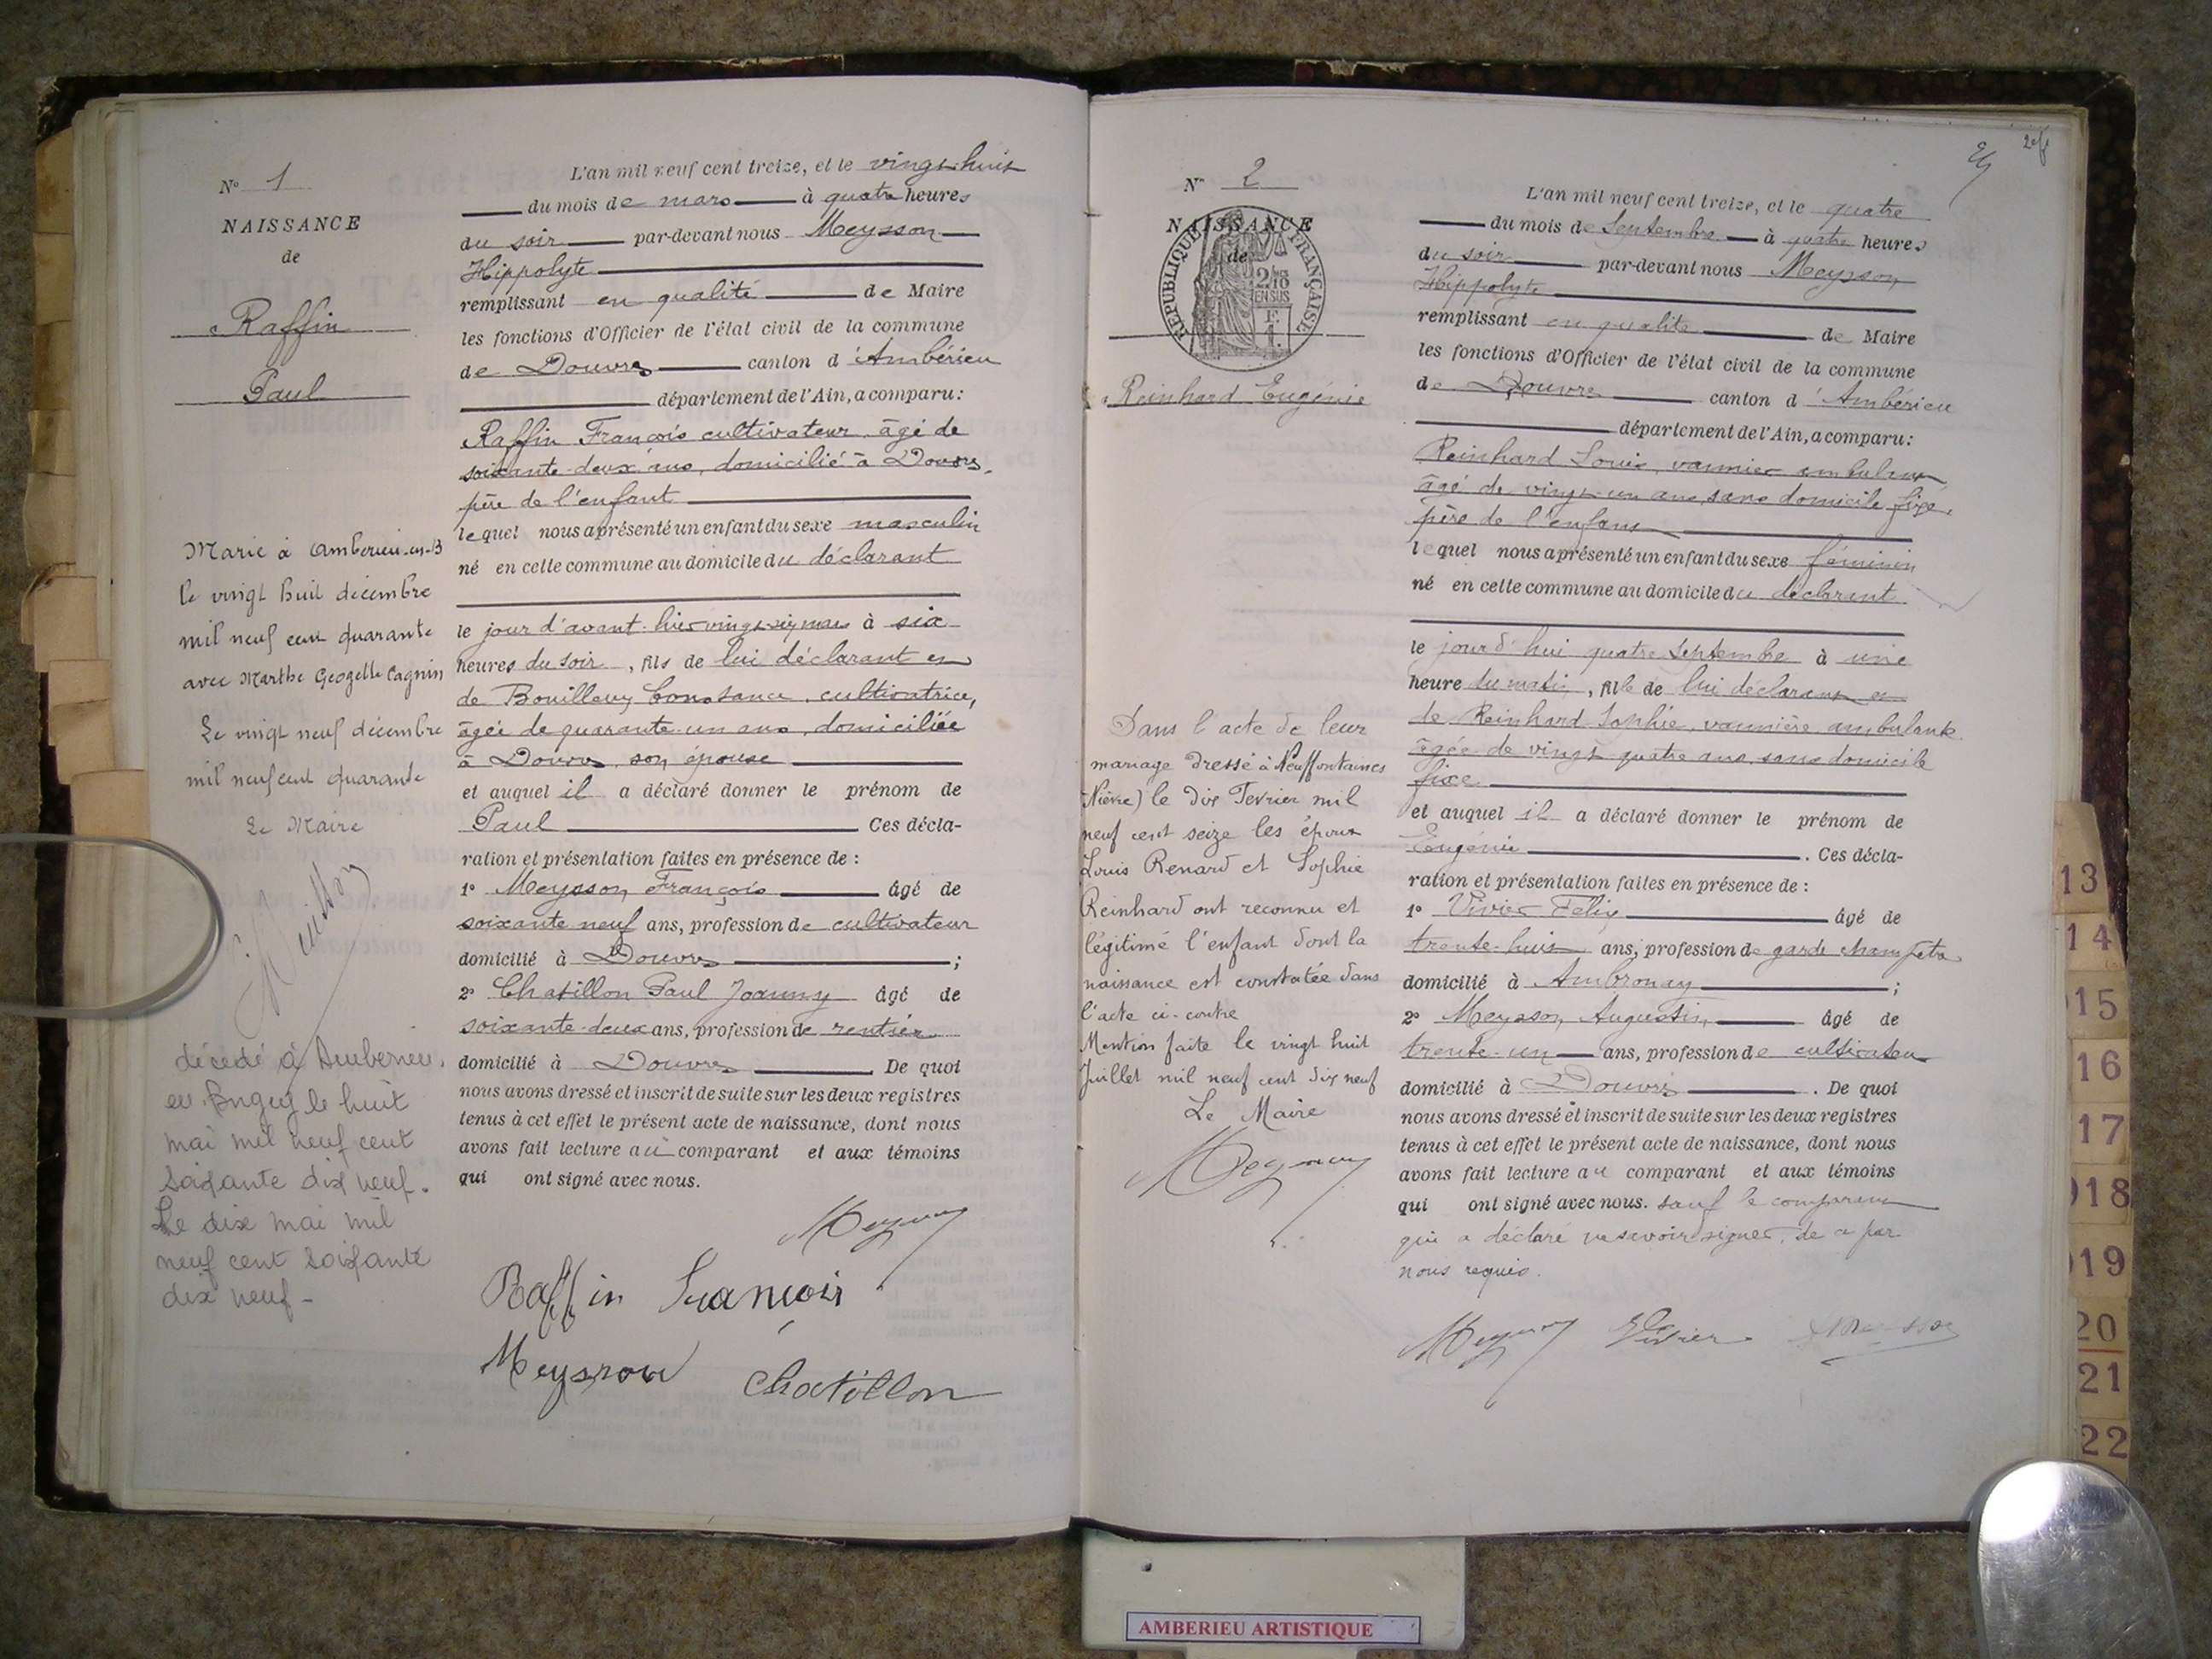 N° 1
NAISSANCE
de
Raffin
Paul
Marié à Ambérieu-en-B
le vingt huit décembre
mil neuf cent quarante
avec Marthe Geogette Cagnin
Le vingt neuf décembre
mil neuf cent quarante
Le Maire
décédé à Amberieu
en Bugey le huit
mai mil neuf cent
soixante dix neuf.
Le dix mai mil
neuf cent soixante
dix neuf -
L'an mil neuf cent treize, et le vingt-huit
du mois de mars à quatre heures
du soir par-devant nous Meysson
Hippolyte
remplissant en qualité de Maire
les fonctions d'Officier de l'état civil de la commune
de Douvres canton d'Ambérieu
département de l'Ain, a comparu :
Raffin François cultivateur, âgé de
soixante-deux ans, domicilié à Douvres,
père de l'enfant
lequel nous a présenté un enfant du sexe masculin
né en cette commune au domicile du déclarant
le jour d'avant-hier vingt-six mars à six
heures du soir, fils de lui déclarant et
de Bouilloux Constance, cultivatrice,
âgée de quarante-un ans, domiciliée
à Douvres, son épouse
et auquel il a déclaré donner le prénom de
Paul Ces décla-
ration et présentation faites en présence de :
1° Meysson François âgé de
soixante neuf ans, profession de cultivateur
domicilié à Douvres ;
2° Chatillon Paul Joanny âgé de
soixante-deux ans, profession de rentier
domicilié à Douvres De quoi
nous avons dressé et inscrit de suite sur les deux registres
tenus à cet effet le présent acte de naissance, dont nous
avons fait lecture au comparant et aux témoins
qui ont signé avec nous.
Raffin François
Meysson Chatillon
N° 2
NAISSANCE
de
REPUBLIQUE FRANÇAISE
2/10
EN SUS
F.
1.
Reinhard Eugénie
Dans l'acte de leur
mariage dressé à Neuffontaines
(Nièvre) le dix Fevrier mil
neuf cent seize les époux
Louis Renard et Sophie
Reinhard ont reconnu et
légitimé l'enfant dont la
naissance est constatée dans
l'acte ci-contre
Mention faite le vingt huit
Juillet mil neuf cent dix neuf
Le Maire
L'an mil neuf cent treize, et le quatre
du mois de Septembre à quatre heures
du soir par-devant nous Meysson
Hippolyte
remplissant en qualité de Maire
les fonctions d'Officier de l'état civil de la commune
de Douvres canton d'Ambérieu
département de l'Ain, a comparu :
Reinhard Louis, vannier ambulant
âgé de vingt-un ans, sans domicile fixe,
père de l'enfant
lequel nous a présenté un enfant du sexe féminin
né en cette commune au domicile du déclarent
le jourd'hui quatre Septembre à une
heure du matin, fille de lui déclarant et
de Reinhard Sophie, vannière ambulante
âgée de vingt-quatre ans, sans domicile
fixe
et auquel il a déclaré donner le prénom de
Eugénie . Ces décla-
ration et présentation faites en présence de :
1° Vivier Félix âgé de
trente-huit ans, profession de garde champêtre
domicilié à Ambronay ;
2° Meysson Augustin âgé de
trente-un ans, profession de cultivateur
domicilié à Douvres . De quoi
nous avons dressé et inscrit de suite sur les deux registres
tenus à cet effet le présent acte de naissance, dont nous
avons fait lecture au comparant et aux témoins
qui ont signé avec nous. sauf le comparant
qui a déclaré ne savoir signer, de ce par
nous requis.
Vivier
13
14
15
16
17
18
19
20
21
22
AMBERIEU ARTISTIQUE